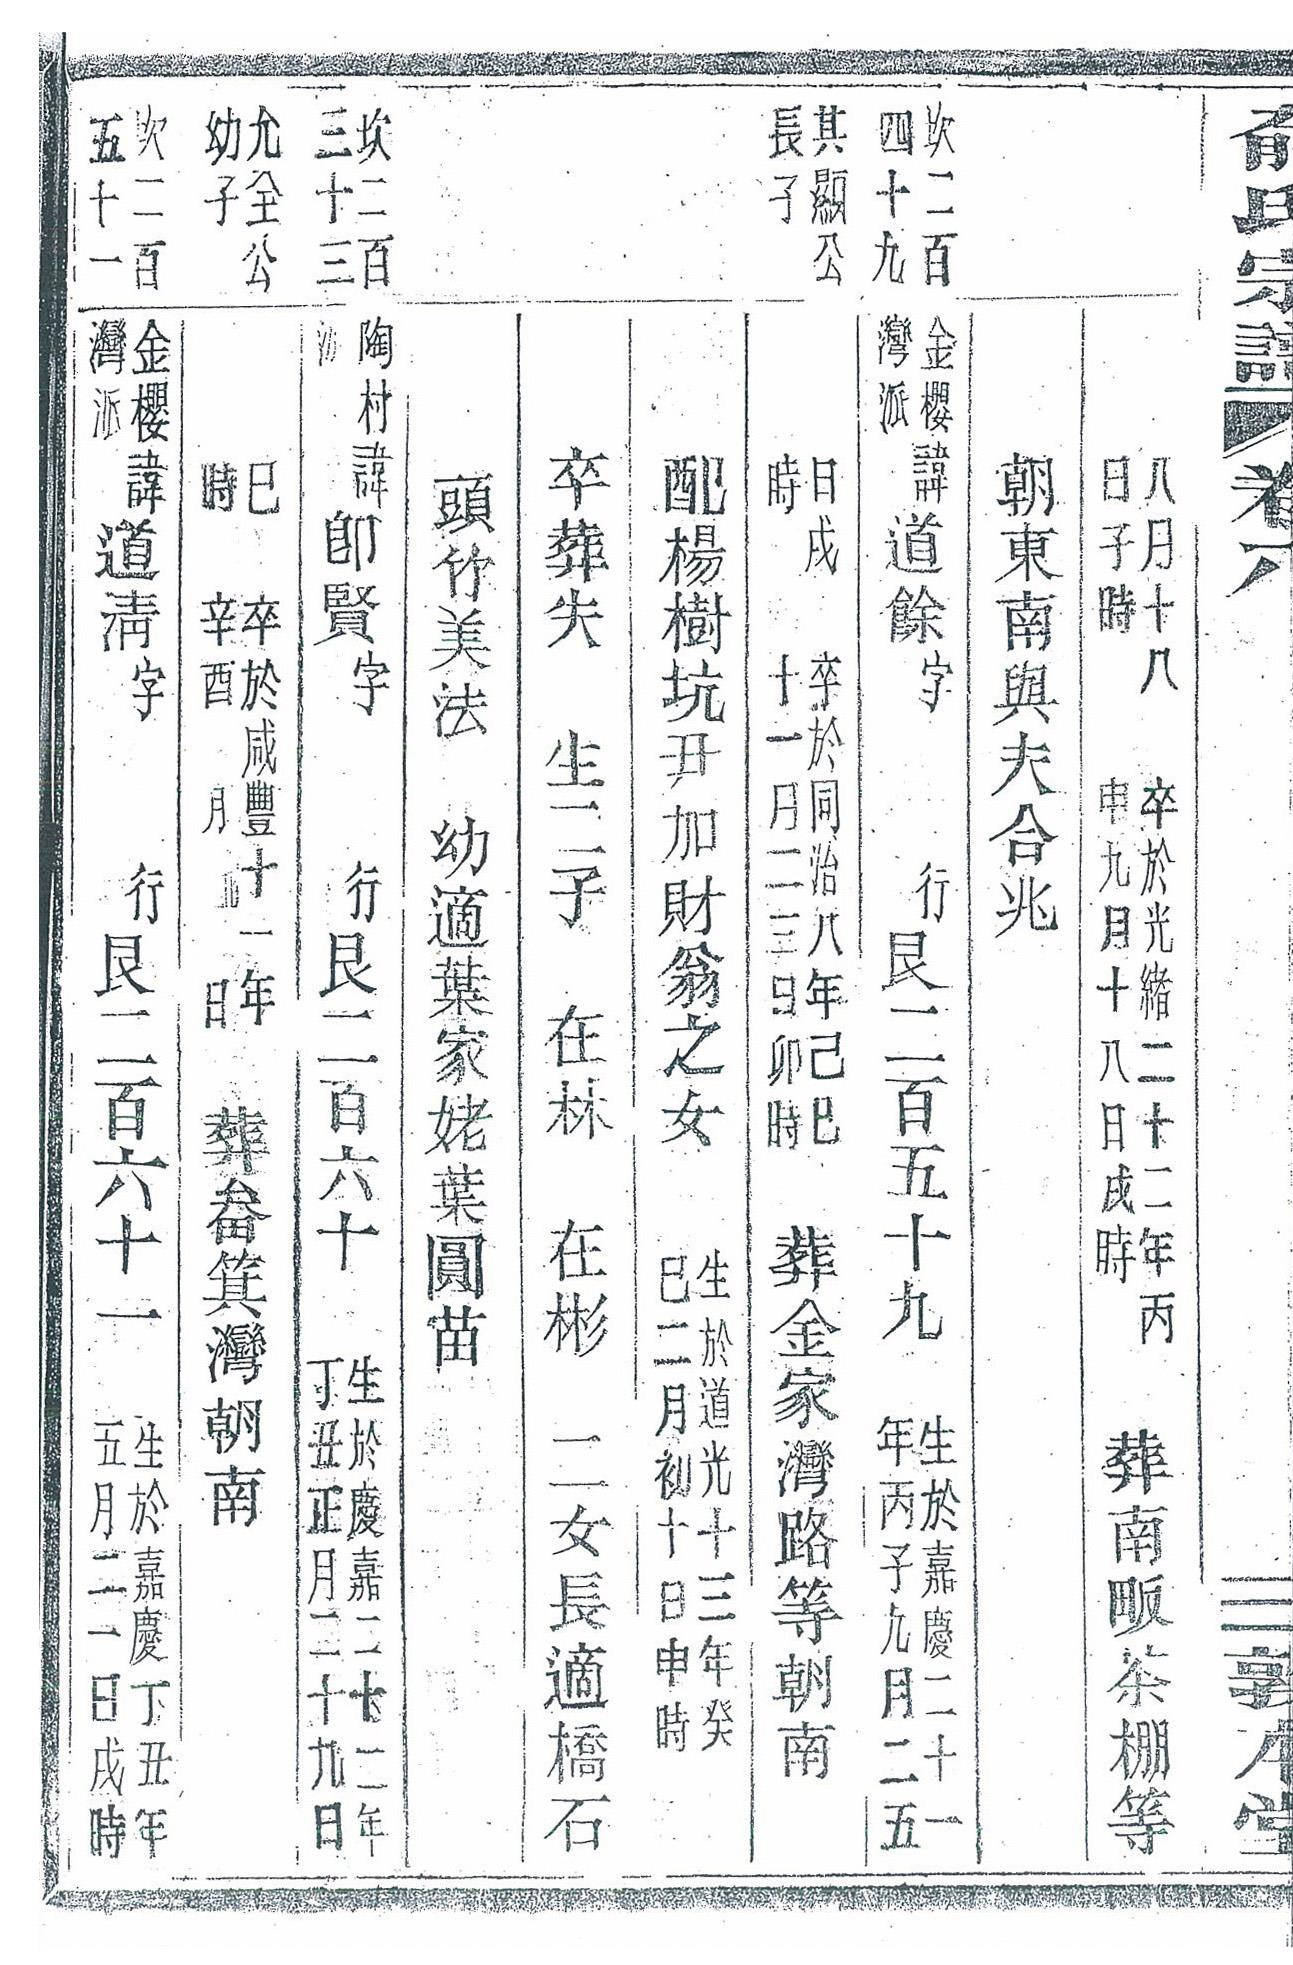 俞氏宗譜 卷八 三 敦本堂
八月十八
日子時
卒於光緒二十二年丙
申九月十八日戌時
葬南畈茶棚等
朝東南與夫合兆
坎二百
四十九
金櫻
灣派
諱道餘字 行艮二百五十九
生於嘉慶二十一
年丙子九月二五
其顯公
長子
日戌
時
卒於同治八年己巳
十一月二三日卯時
葬金家灣路等朝南
配楊樹坑尹加財翁之女
生於道光十三年癸
巳二月初十日申時
卒葬失 生二子 在林 在彬 二女長適橋石
頭竹美法 幼適葉家姥葉圓苗
坎二百
三十三
陶村
派
諱即賢字 行艮二百六十
生於慶嘉二十二年
丁丑正月二十九日
允全公
幼子
巳
時
卒於咸豐十一年
辛酉 月 日
葬畚箕灣朝南
坎二百
五十一
金櫻
灣派
諱道淸字 行艮二百六十一
生於嘉慶丁丑年
五月二二日戌時